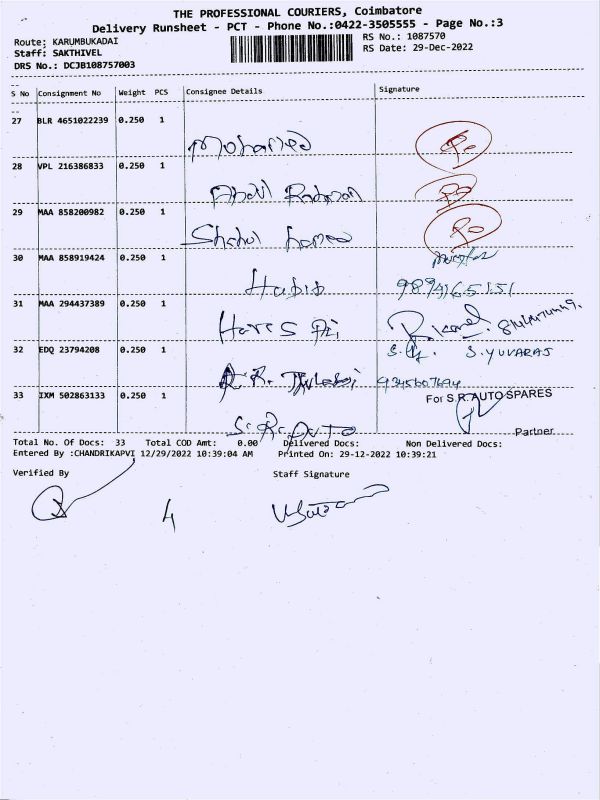 THE PROFESSIONAL COURIERS, Coimbatore
Delivery Runsheet - PCT - Phone No.:0422-3505555 - Page No.:3
Route: KARUMBUKADAI
RS No.: 1087570
Staff: SAKTHIVEL
RS Date: 29-Dec-2022
DRS No.: DCJB108757003
S No Consignment No Weight PCS Consignee Details Signature
27 BLR 4651022239 0.250 1
28 VPL 216386833 0.250 1
29 MAA 858200982 0.250 1
30 MAA 858919424 0.250 1 Habib
31 MAA 294437389 0.250 1
32 EDQ 23794208 0.250 1 S. YUVARAJ
33 IXM 502863133 0.250 1 For S.R.AUTO SPARES
Partner
Total No. Of Docs: 33 Total COD Amt: 0.00 Delivered Docs: Non Delivered Docs:
Entered By :CHANDRIKAPVI 12/29/2022 10:39:04 AM Printed On: 29-12-2022 10:39:21
Verified By Staff Signature